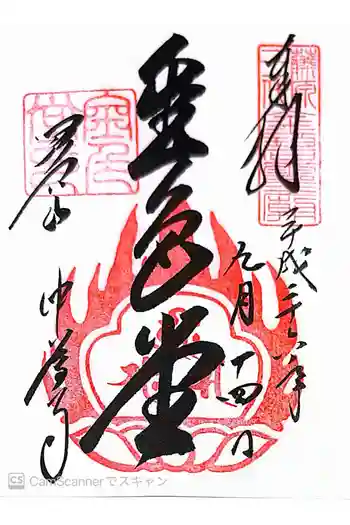 奉拝
藤原
平成二十六年
九月十四日
金色堂
関山
中尊寺
CS CamScannerでスキャン